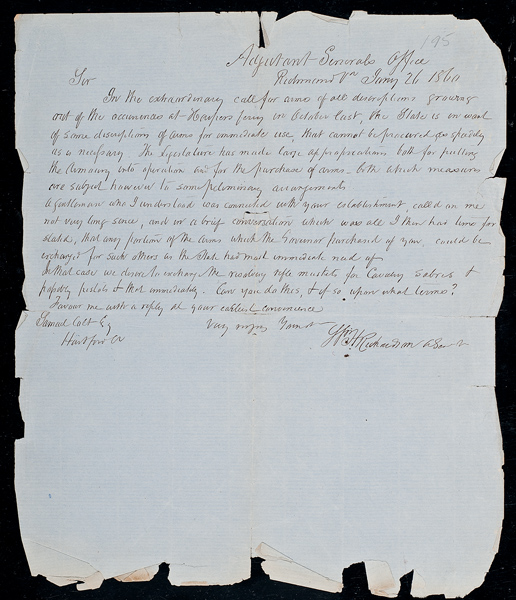 195
Adjutant Generals Office
Richmond Va Jany 26 1860
Sir
In the extraordinary call for arms of all descriptions growing
out of the occurrences at Harpers ferry in October last, the State is in want
of some descriptions of arms for immediate use, that cannot be procured as speedily
as is necessary. The Legislature has made large appropriations both for putting
the Armoury into operation and for the purchase of arms - both which measures
are subject however to some preliminary arrangements
A gentleman who I understood was connected with your establishment, called on me
not very long since, and in a brief conversation which was all I then had time for
stated, that any portion of the arms which the Governor purchased of you, could be
exchanged for such others as the State had most immediate need of
In that case we desire to exchange the revolving rifle muskets for Cavalry Sabres &
possibly pistols & that immediately. Can you do this, & if so upon what terms?
Favour me with a reply at your earliest convenience
Samuel Colt Esq
Very respy Yours &
Hartford Ct
Wm H Richardson